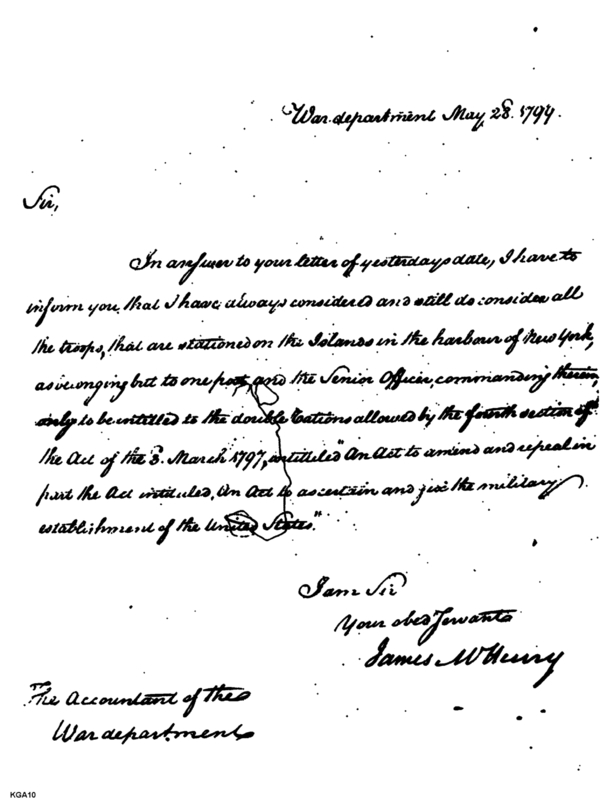 War department May 28. 1799.
Sir,
In answer to your letter of yesterdays date, I have to
inform you that I have always considered and still do consider all
the troops, that are stationed on the Islands in the harbour of New York,
as belonging but to one post, and the Senior Officer, commanding therein,
only to be entitled to the double rations allowed by the fourth section of
the Act of the 3. March 1797, entitled "An Act to amend and repeal in
part the Act intituled, An Act to ascertain and fix the military
establishment of the United States."
I am Sir
Your obed Servant
James McHenry
The Accountant of the
War department
KGA10